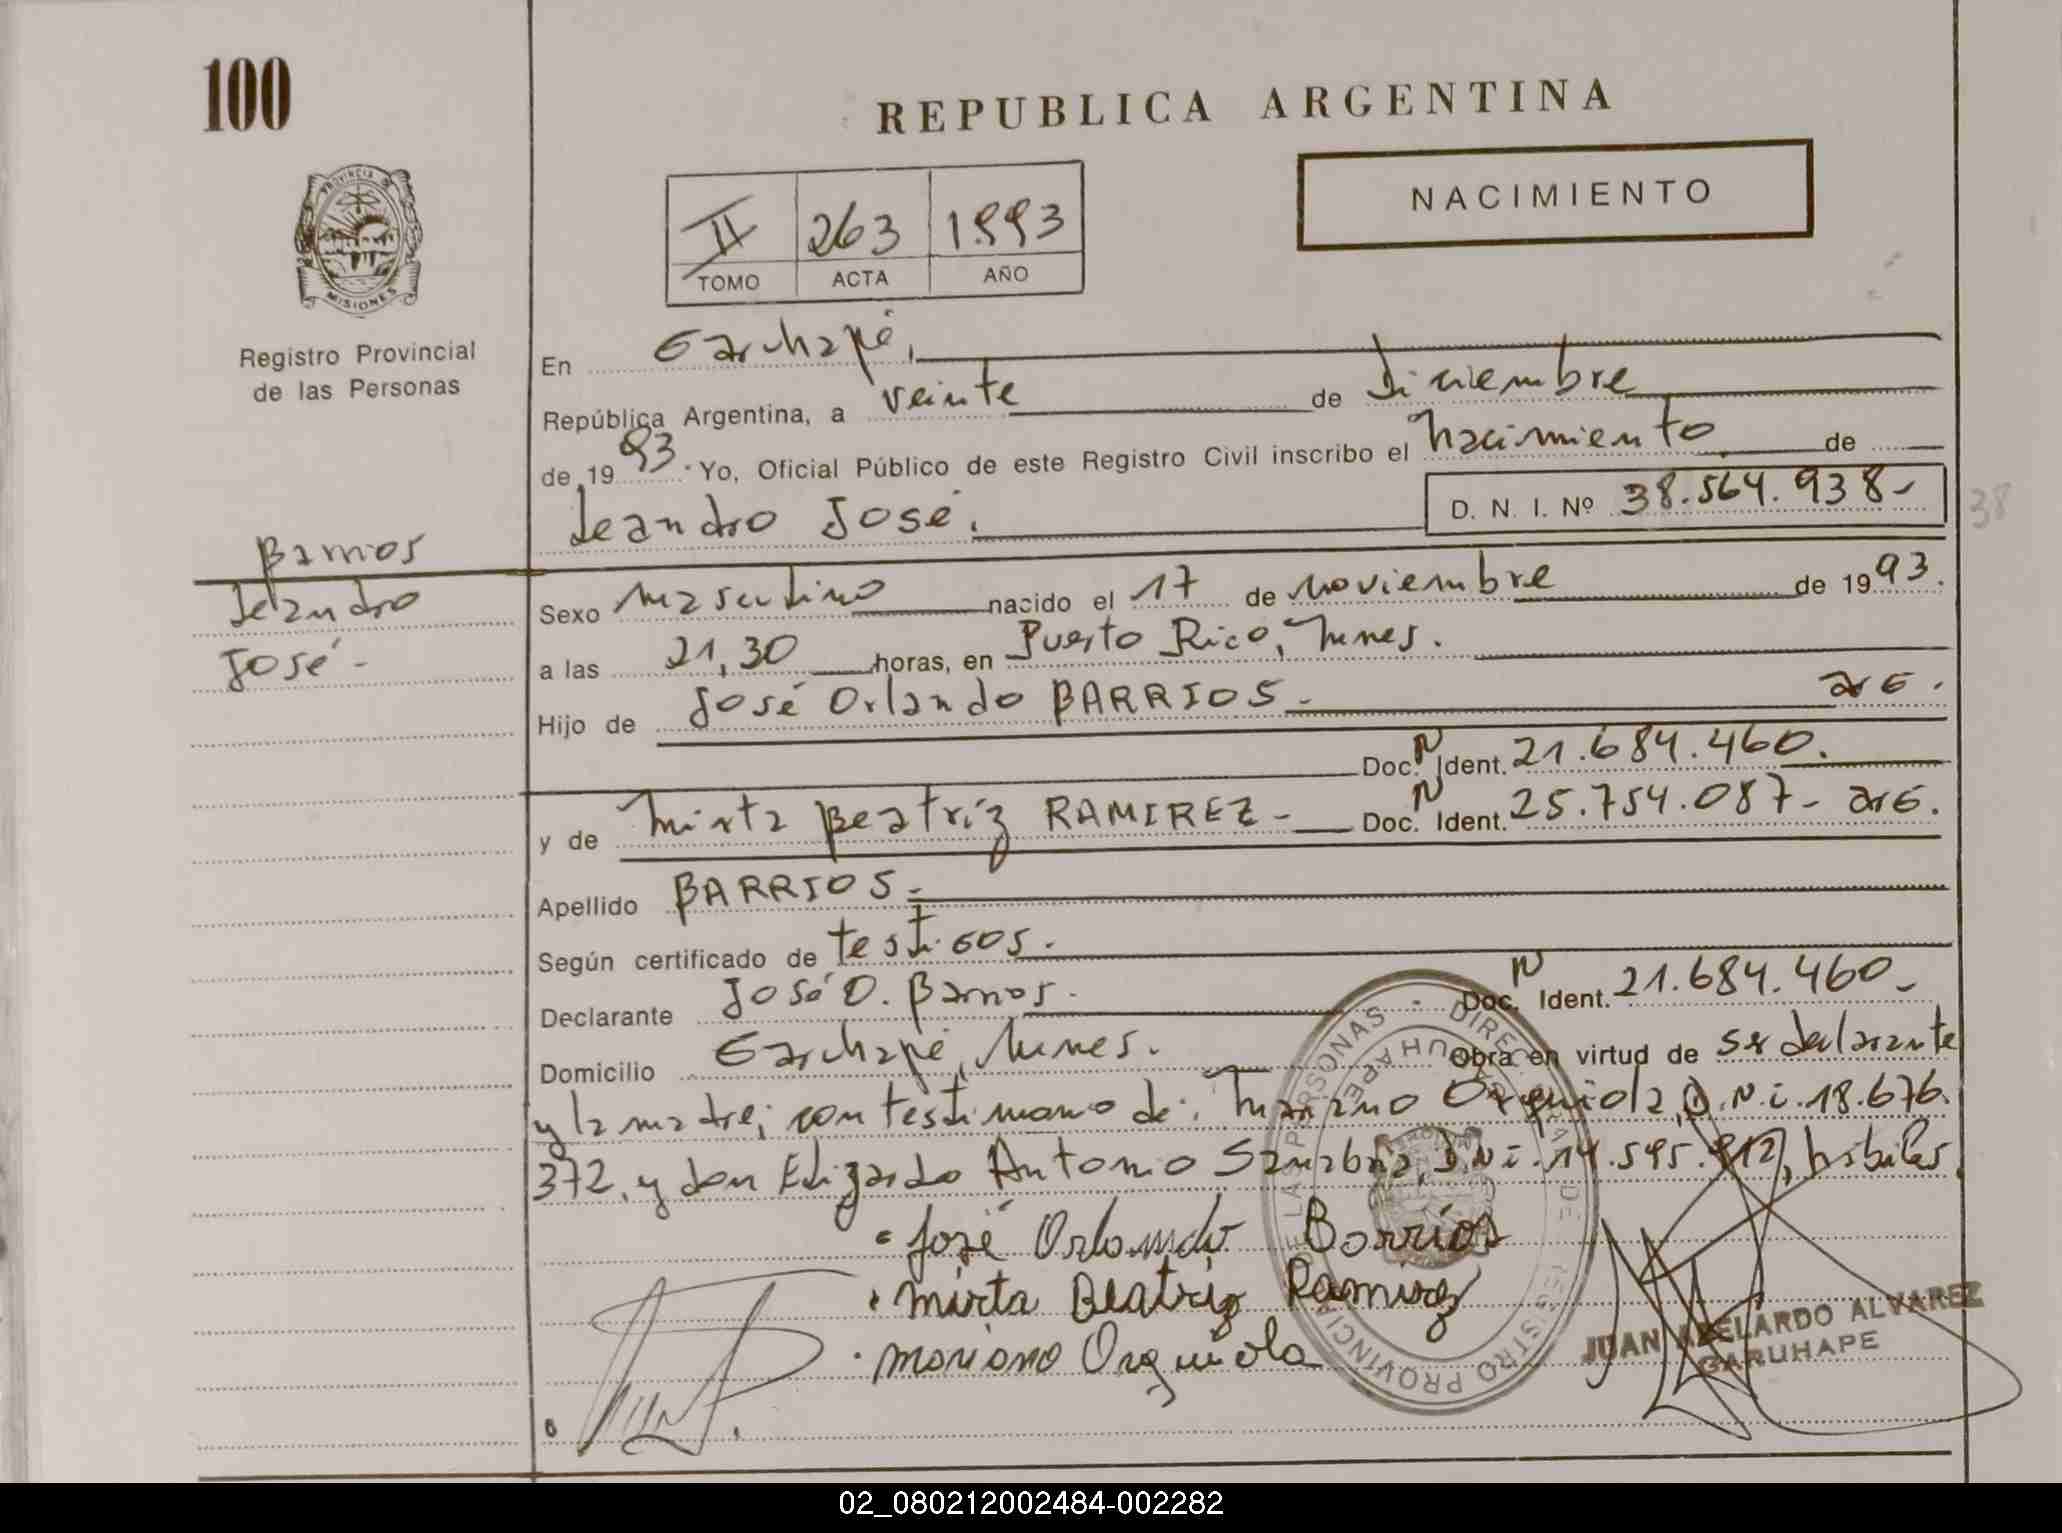 100
REPUBLICA ARGENTINA
NACIMIENTO
II 263 1.993
TOMO ACTA AÑO
PROVINCIA DE
MISIONES
Registro Provincial
de las Personas
En Garuhapé,
República Argentina, a veinte de Diciembre
de 1993. Yo, Oficial Público de este Registro Civil inscribo el nacimiento de
Leandro José.
D. N. I. Nº 38.564.938-
38
Barrios
Leandro
José-
Sexo masculino nacido el 17 de noviembre de 1993.
a las 21,30 horas, en Puerto Rico, Mnes.
Hijo de José Orlando BARRIOS- arg.
Doc. N Ident. 21.684.460.
y de Mirta Beatríz RAMIREZ- Doc. N Ident. 25.754.087- arg.
Apellido BARRIOS-
Según certificado de testigos.
Declarante José O. Barrios. Doc. N Ident. 21.684.460-
Domicilio Garuhapé, Mnes. Obra en virtud de ser declarante
y la madre; con testimonio de: Mariano Orquiola, D.N.i. 18.676.
372, y don Elizardo Antonio Sanabria, D.N.i. 14.595.912, hábiles.
José Orlando Barrios
Mirta Beatriz Ramirez
Mariano Orquiola
DIRECCION GENERAL DE REGISTRO PROVINCIAL DE LAS PERSONAS
GARUHAPE
JUAN ABELARDO ALVAREZ
GARUHAPE
02_080212002484-002282